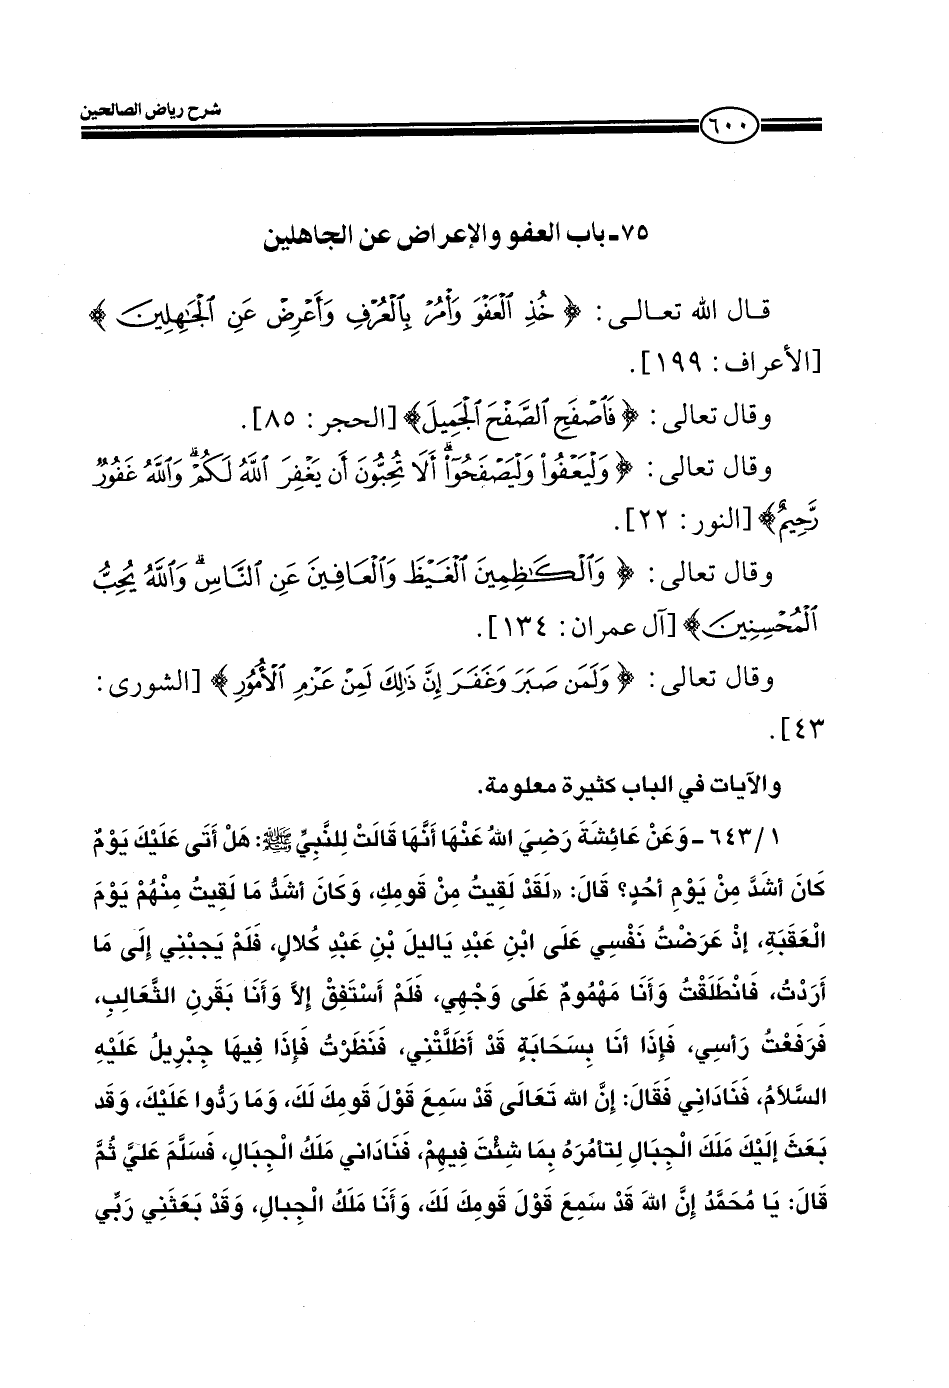 شرح رياض الصالحين
٦٠٠
٧٥ـ باب العفو والإعراض عن الجاهلين
قال الله تعالى: ﴿ خُذِ ٱلْعَفْوَ وَأْمُرْ بِٱلْعُرْفِ وَأَعْرِضْ عَنِ ٱلْجَٰهِلِينَ ﴾
[الأعراف: ١٩٩].
وقال تعالى: ﴿ فَٱصْفَحِ ٱلصَّفْحَ ٱلْجَمِيلَ﴾ [الحجر: ٨٥].
وقال تعالى: ﴿ وَلْيَعْفُوا۟ وَلْيَصْفَحُوٓا۟ ۗ أَلَا تُحِبُّونَ أَن يَغْفِرَ ٱللَّهُ لَكُمْ ۗ وَٱللَّهُ غَفُورٌ
رَّحِيمٌ﴾ [النور: ٢٢].
وقال تعالى: ﴿ وَٱلْكَٰظِمِينَ ٱلْغَيْظَ وَٱلْعَافِينَ عَنِ ٱلنَّاسِ ۗ وَٱللَّهُ يُحِبُّ
ٱلْمُحْسِنِينَ﴾ [آل عمران: ١٣٤].
وقال تعالى: ﴿ وَلَمَن صَبَرَ وَغَفَرَ إِنَّ ذَٰلِكَ لَمِنْ عَزْمِ ٱلْأُمُورِ ﴾ [الشورى:
٤٣].
والآيات في الباب كثيرة معلومة.
١/ ٦٤٣ ـ وَعَنْ عَائِشَةَ رَضِيَ اللهُ عَنْهَا أَنَّهَا قَالَتْ لِلنَّبِيِّ ﷺ: هَلْ أَتَى عَلَيْكَ يَوْمٌ
كَانَ أَشَدَّ مِنْ يَوْمِ أُحُدٍ؟ قَالَ: «لَقَدْ لَقِيتُ مِنْ قَومِكِ، وَكَانَ أَشَدُّ مَا لَقِيتُ مِنْهُمْ يَوْمَ
الْعَقَبَةِ، إذْ عَرَضْتُ نَفْسِي عَلَى ابْنِ عَبْدِ يَالِيلَ بْنِ عَبْدِ كُلالٍ، فَلَمْ يَجِبْنِي إلَى مَا
أَرَدْتُ، فَانْطَلَقْتُ وَأَنَا مَهْمُومٌ عَلَى وَجْهِي، فَلَمْ أَسْتَفِقْ إلاَّ وَأَنَا بِقَرنِ الثَّعَالِبِ،
فَرَفَعْتُ رَأسِي، فَإِذَا أنَا بِسَحَابَةٍ قَدْ أَظَلَّتْنِي، فَنَظَرْتُ فَإِذَا فِيهَا جِبْرِيلُ عَلَيْهِ
السَّلاَمُ، فَنَادَانِي فَقَالَ: إنَّ الله تَعَالَى قَدْ سَمِعَ قَوْلَ قَومِكَ لَكَ، وَمَا رَدُّوا عَلَيْكَ، وَقَد
بَعَثَ إلَيْكَ مَلَكَ الْجِبَالِ لِتأمُرَهُ بِمَا شِئْتَ فِيهِمْ، فَنَادَانِي مَلَكُ الْجِبَالِ، فَسَلَّمَ عَلَيَّ ثُمَّ
قَالَ: يَا مُحَمَّدُ إنَّ اللهَ قَدْ سَمِعَ قَوْلَ قَومِكَ لَكَ، وَأَنَا مَلَكُ الْجِبالِ، وَقَدْ بَعَثَنِي رَبِّي